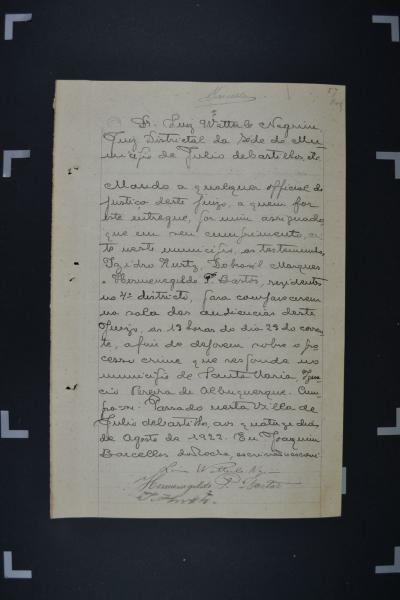 Dr. Luiz Vittal Negrini
Juiz Districtal da Séde do Mu-
nicipio de Julio de Castilhos, etc
Mando a qualquer official de
justiça deste Juizo, a quem for
este entregue, por mim assignado
que em seu cumprimento, ci-
te neste municipio, as testemunhas
Izidro Kurtz, Marques
e Hermenegildo P. Bastos, residentes
no 4º districto, para comparecerem
na sala das audiencias deste
Juizo, as 13 horas do dia 29 do corren-
te, afim de deporem sobre o pro-
cesso crime que responde no
municipio de Santa Maria, Igna-
cio Pereira de Albuquerque. Cum-
pra-se. Passado nesta Villa de
Julio de Castilhos, aos quatorze dias
de Agosto de 1922. Eu Joaquim
Barcellos da Rocha, escrivão
Hermenegildo P. Bastos